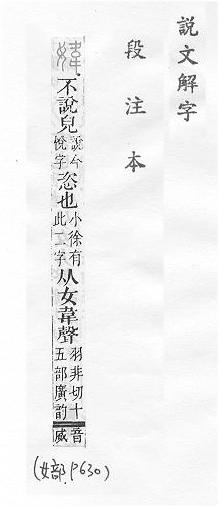 說文解字
段注本
媁
不說皃說今悅字恣也小徐有此二字从女韋聲羽非切十五部廣韵音威
(女部.P630)